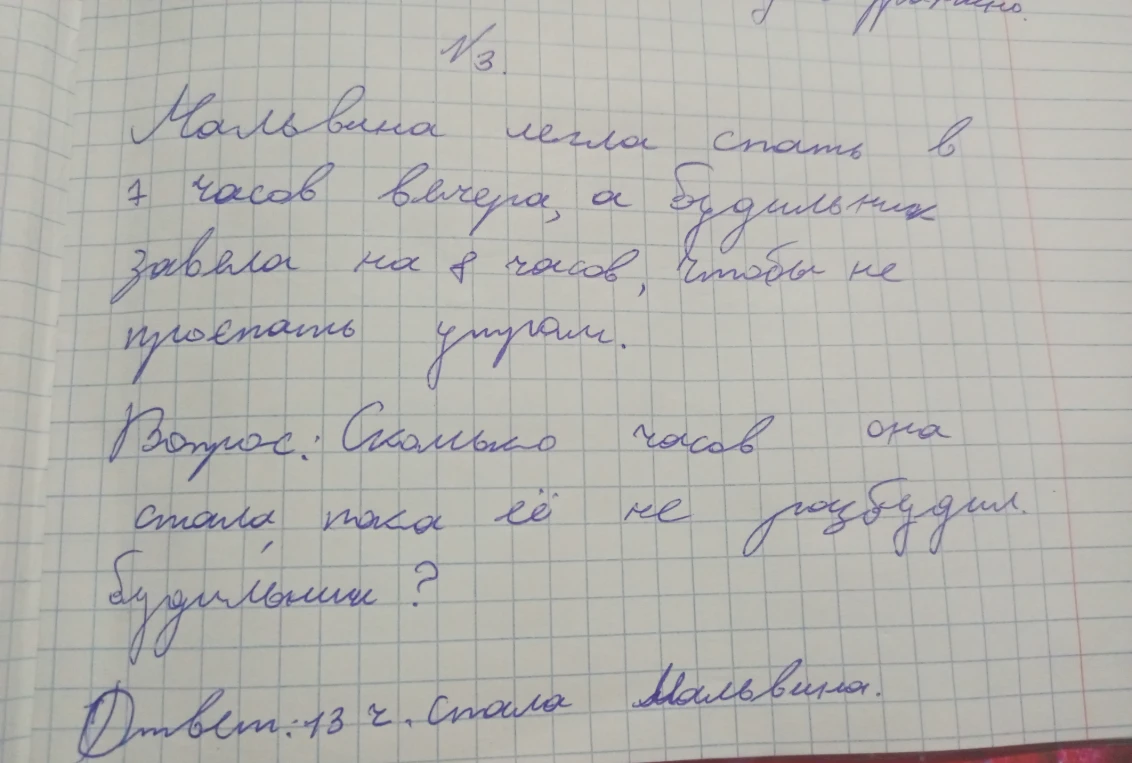 №3.
Мальвина легла спать в
7 часов вечера, а будильник
завела на 8 часов, чтобы не
проспать утром.
Вопрос: Сколько часов она
спала, пока её не разбудил.
будильник?
Ответ: 13 ч. спала Мальвина.